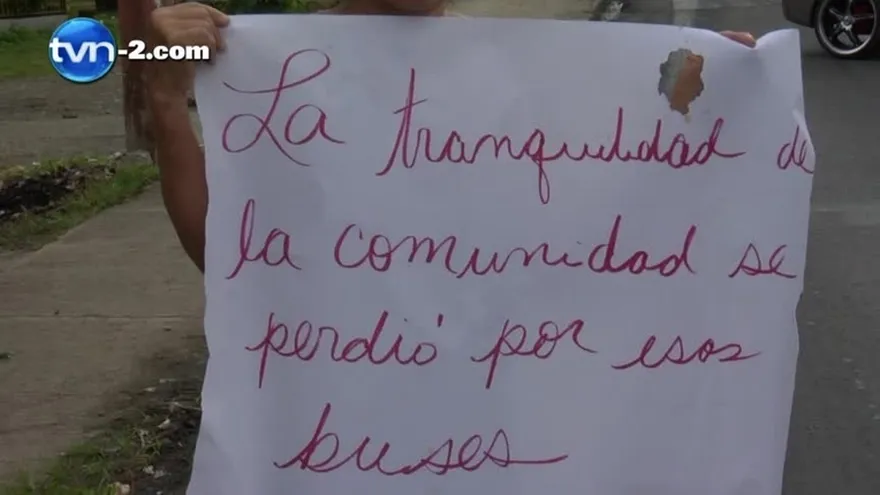 tvn-2.com
La tranquilidad de
la comunidad se
perdió por esos
buses